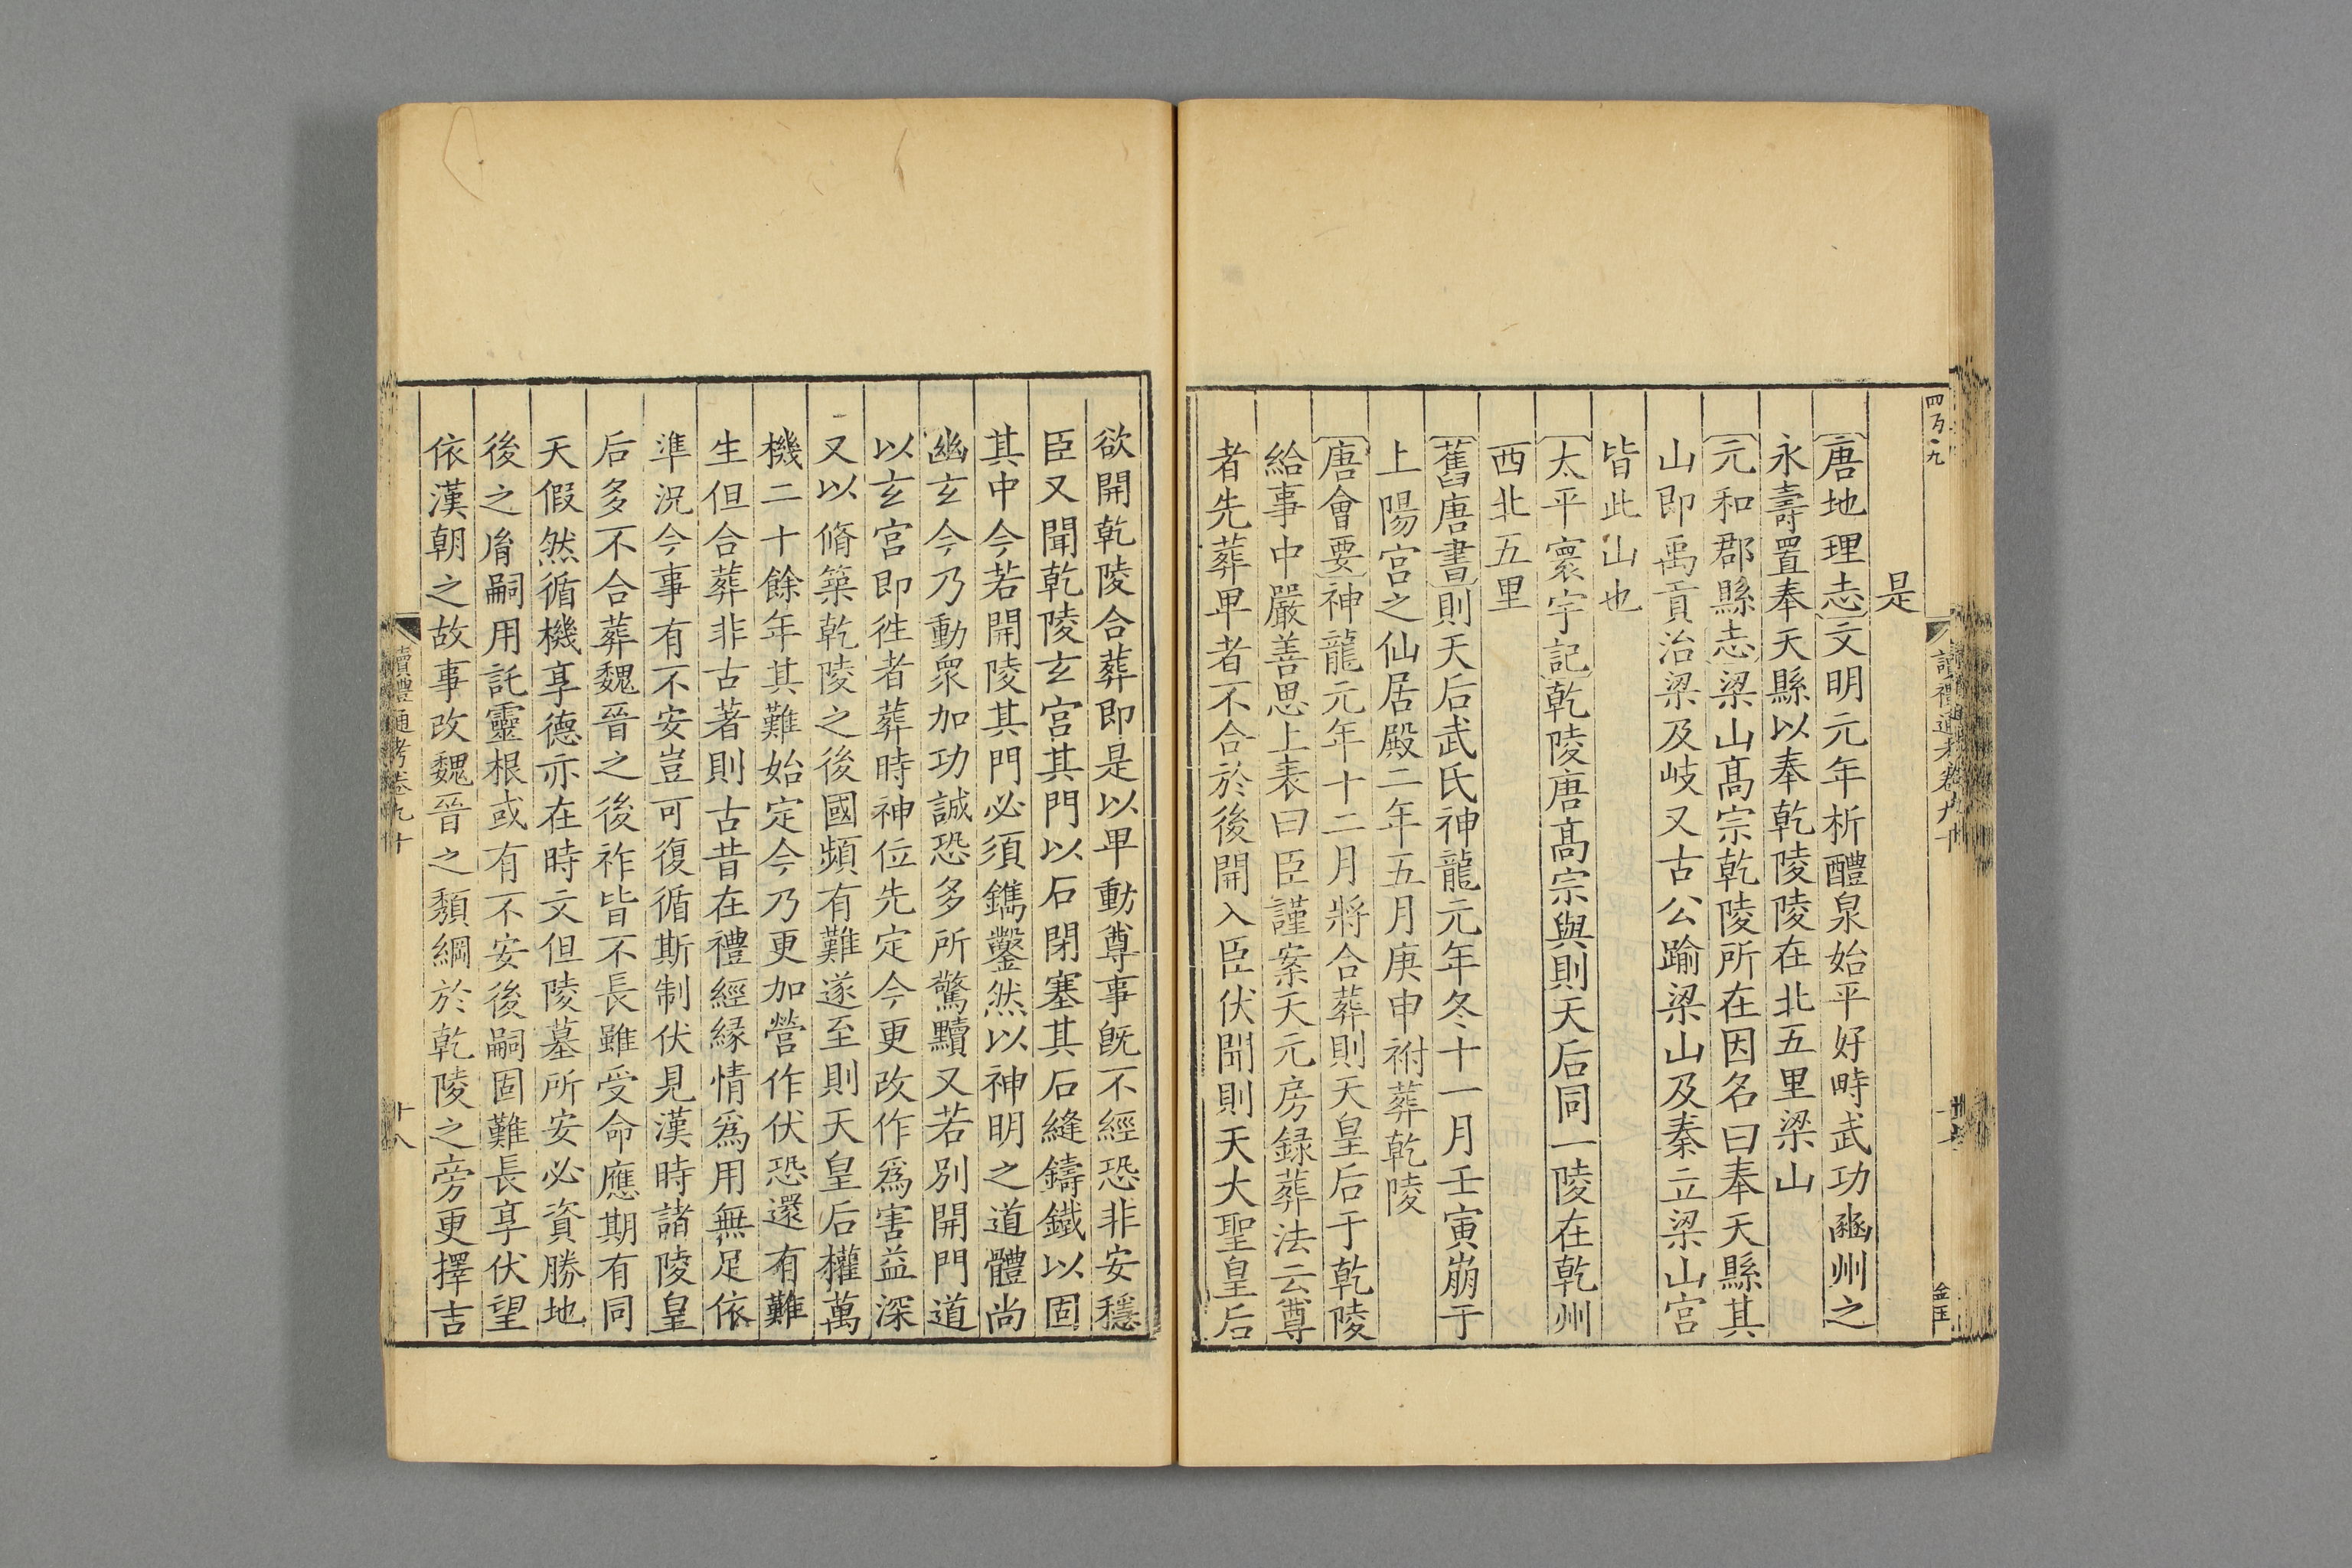 四百一九
讀禮通考卷九十
十七
是
〔唐地理志〕文明元年析醴泉始平好畤武功豳州之
永壽置奉天縣以奉乾陵陵在北五里梁山
〔元和郡縣志〕梁山髙宗乾陵所在因名曰奉天縣其
山即禹貢治梁及岐又古公踰梁山及秦立梁山宫
皆此山也
〔太平寰宇記〕乾陵唐髙宗與則天后同一陵在乾州
西北五里
〔舊唐書〕則天后武氏神龍元年冬十一月壬寅崩于
上陽宫之仙居殿二年五月庚申祔葬乾陵
〔唐會要〕神龍元年十二月將合葬則天皇后于乾陵
給事中嚴善思上表曰臣謹案天元房録葬法云尊
者先葬卑者不合於後開入臣伏聞則天大聖皇后
欲開乾陵合葬即是以卑動尊事旣不經恐非安穩
臣又聞乾陵玄宫其門以石閉塞其石縫鑄鐵以固
其中今若開陵其門必須鐫鑿然以神明之道體尚
幽玄今乃動衆加功誠恐多所驚黷又若別開門道
以玄宫即徃者葬時神位先定今更改作爲害益深
又以脩築乾陵之後國頻有難遂至則天皇后權萬
機二十餘年其難始定今乃更加營作伏恐還有難
生但合葬非古著則古昔在禮經緣情爲用無足依
準況今事有不安豈可復循斯制伏見漢時諸陵皇
后多不合葬魏晉之後祚皆不長雖受命應期有同
天假然循機享德亦在時文但陵墓所安必資勝地
後之胤嗣用託靈根或有不安後嗣固難長享伏望
依漢朝之故事改魏晉之頽綱於乾陵之旁更擇吉
讀禮通考卷九十
十八